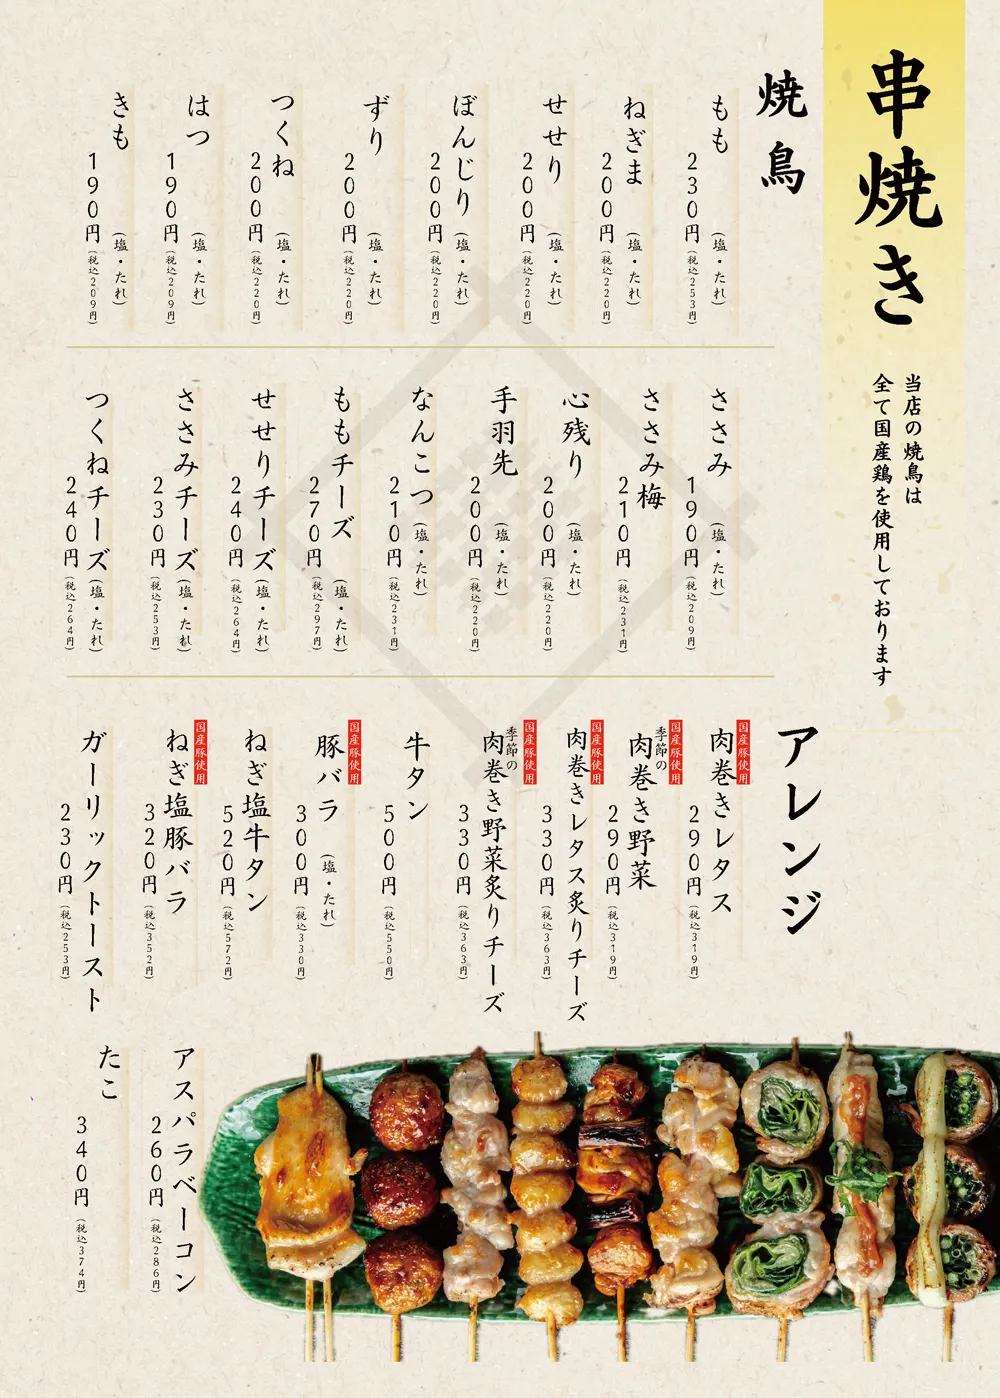 串焼き
当店の焼鳥は
全て国産鶏を使用しております
焼鳥
もも
(塩・たれ)
230円(税込253円)
ねぎま
(塩・たれ)
200円(税込220円)
せせり
(塩・たれ)
200円(税込220円)
ぼんじり
(塩・たれ)
200円(税込220円)
ずり
(塩・たれ)
200円(税込220円)
つくね
(塩・たれ)
200円(税込220円)
はつ
(塩・たれ)
190円(税込209円)
きも
(塩・たれ)
190円(税込209円)
ささみ
(塩・たれ)
190円(税込209円)
ささみ梅
210円(税込231円)
心残り
(塩・たれ)
200円(税込220円)
手羽先
(塩・たれ)
200円(税込220円)
なんこつ
(塩・たれ)
210円(税込231円)
ももチーズ
(塩・たれ)
270円(税込297円)
せせりチーズ
(塩・たれ)
240円(税込264円)
ささみチーズ
(塩・たれ)
230円(税込253円)
つくねチーズ
(塩・たれ)
240円(税込264円)
アレンジ
国産豚使用
肉巻きレタス
290円(税込319円)
国産豚使用
季節の
肉巻き野菜
290円(税込319円)
国産豚使用
肉巻きレタス炙りチーズ
330円(税込363円)
国産豚使用
季節の
肉巻き野菜炙りチーズ
330円(税込363円)
牛タン
500円(税込550円)
国産豚使用
豚バラ
(塩・たれ)
300円(税込330円)
ねぎ塩牛タン
520円(税込572円)
国産豚使用
ねぎ塩豚バラ
320円(税込352円)
ガーリックトースト
230円(税込253円)
アスパラベーコン
260円(税込286円)
たこ
340円(税込374円)